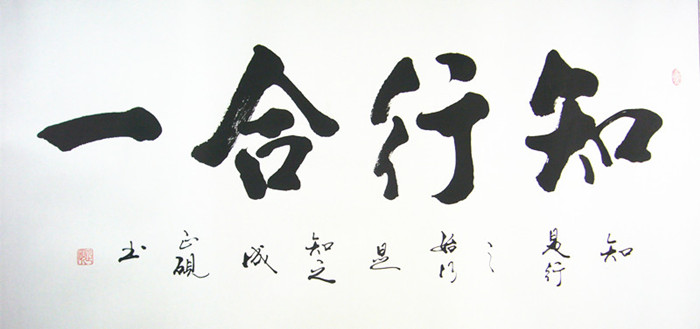 知行合一
知是行之始行是知之成 硯书